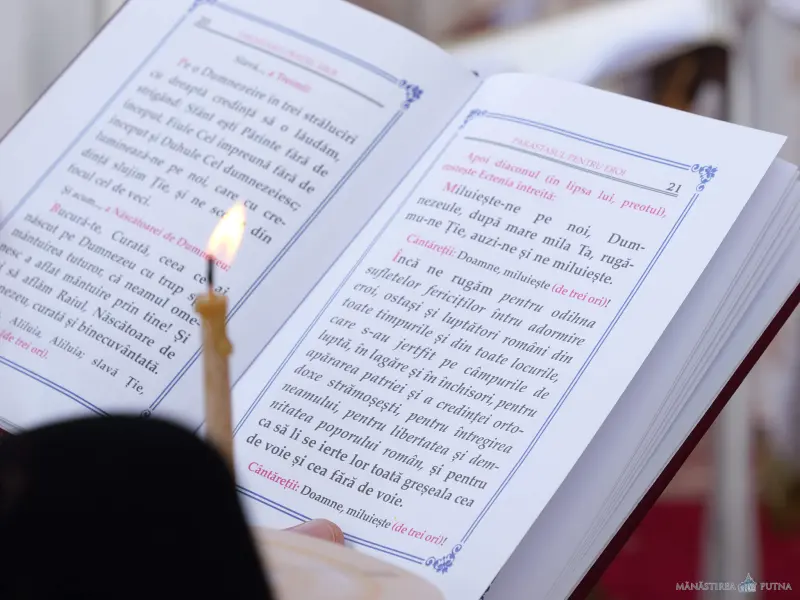 Slavă... a Treimii:
Pe o Dumnezeire în trei străluciri
cu dreaptă credință să o lăudăm,
strigând: Sfânt ești Părinte fără de
început, Fiule Cel împreună fără de
început și Duhule Cel dumnezeiesc;
luminează-ne pe noi, care cu cre-
dință slujim Ție, și ne din
focul cel de veci.
Și acum... a Născătoarei de Dumnezeu:
Bucură-te, Curată, ceea ce ai
născut pe Dumnezeu cu trup
mântuirea tuturor, că neamul ome-
nesc a aflat mântuire prin tine! Și
să aflăm Raiul, Născătoare de
curată și binecuvântată.
Aliluia, Aliluia; slavă Ție,
(de trei ori).
PARASTASUL PENTRU EROI
21
Apoi diaconul (în lipsa lui, preotul),
rostește Ectenia întreită:
Miluiește-ne pe noi, Dum-
nezeule, după mare mila Ta, rugă-
mu-ne Ție, auzi-ne și ne miluiește.
Cântăreții: Doamne, miluiește (de trei ori)!
Încă ne rugăm pentru odihna
sufletelor fericiților întru adormire
eroi, ostași și luptători români din
toate timpurile și din toate locurile,
care s-au jertfit pe câmpurile de
luptă, în lagăre și în închisori, pentru
apărarea patriei și a credinței orto-
doxe strămoșești, pentru întregirea
neamului, pentru libertatea și dem-
nitatea poporului român, și pentru
ca să li se ierte lor toată greșeala cea
de voie și cea fără de voie.
Cântăreții: Doamne, miluiește (de trei ori)!
MĂNĂSTIREA PUTNA